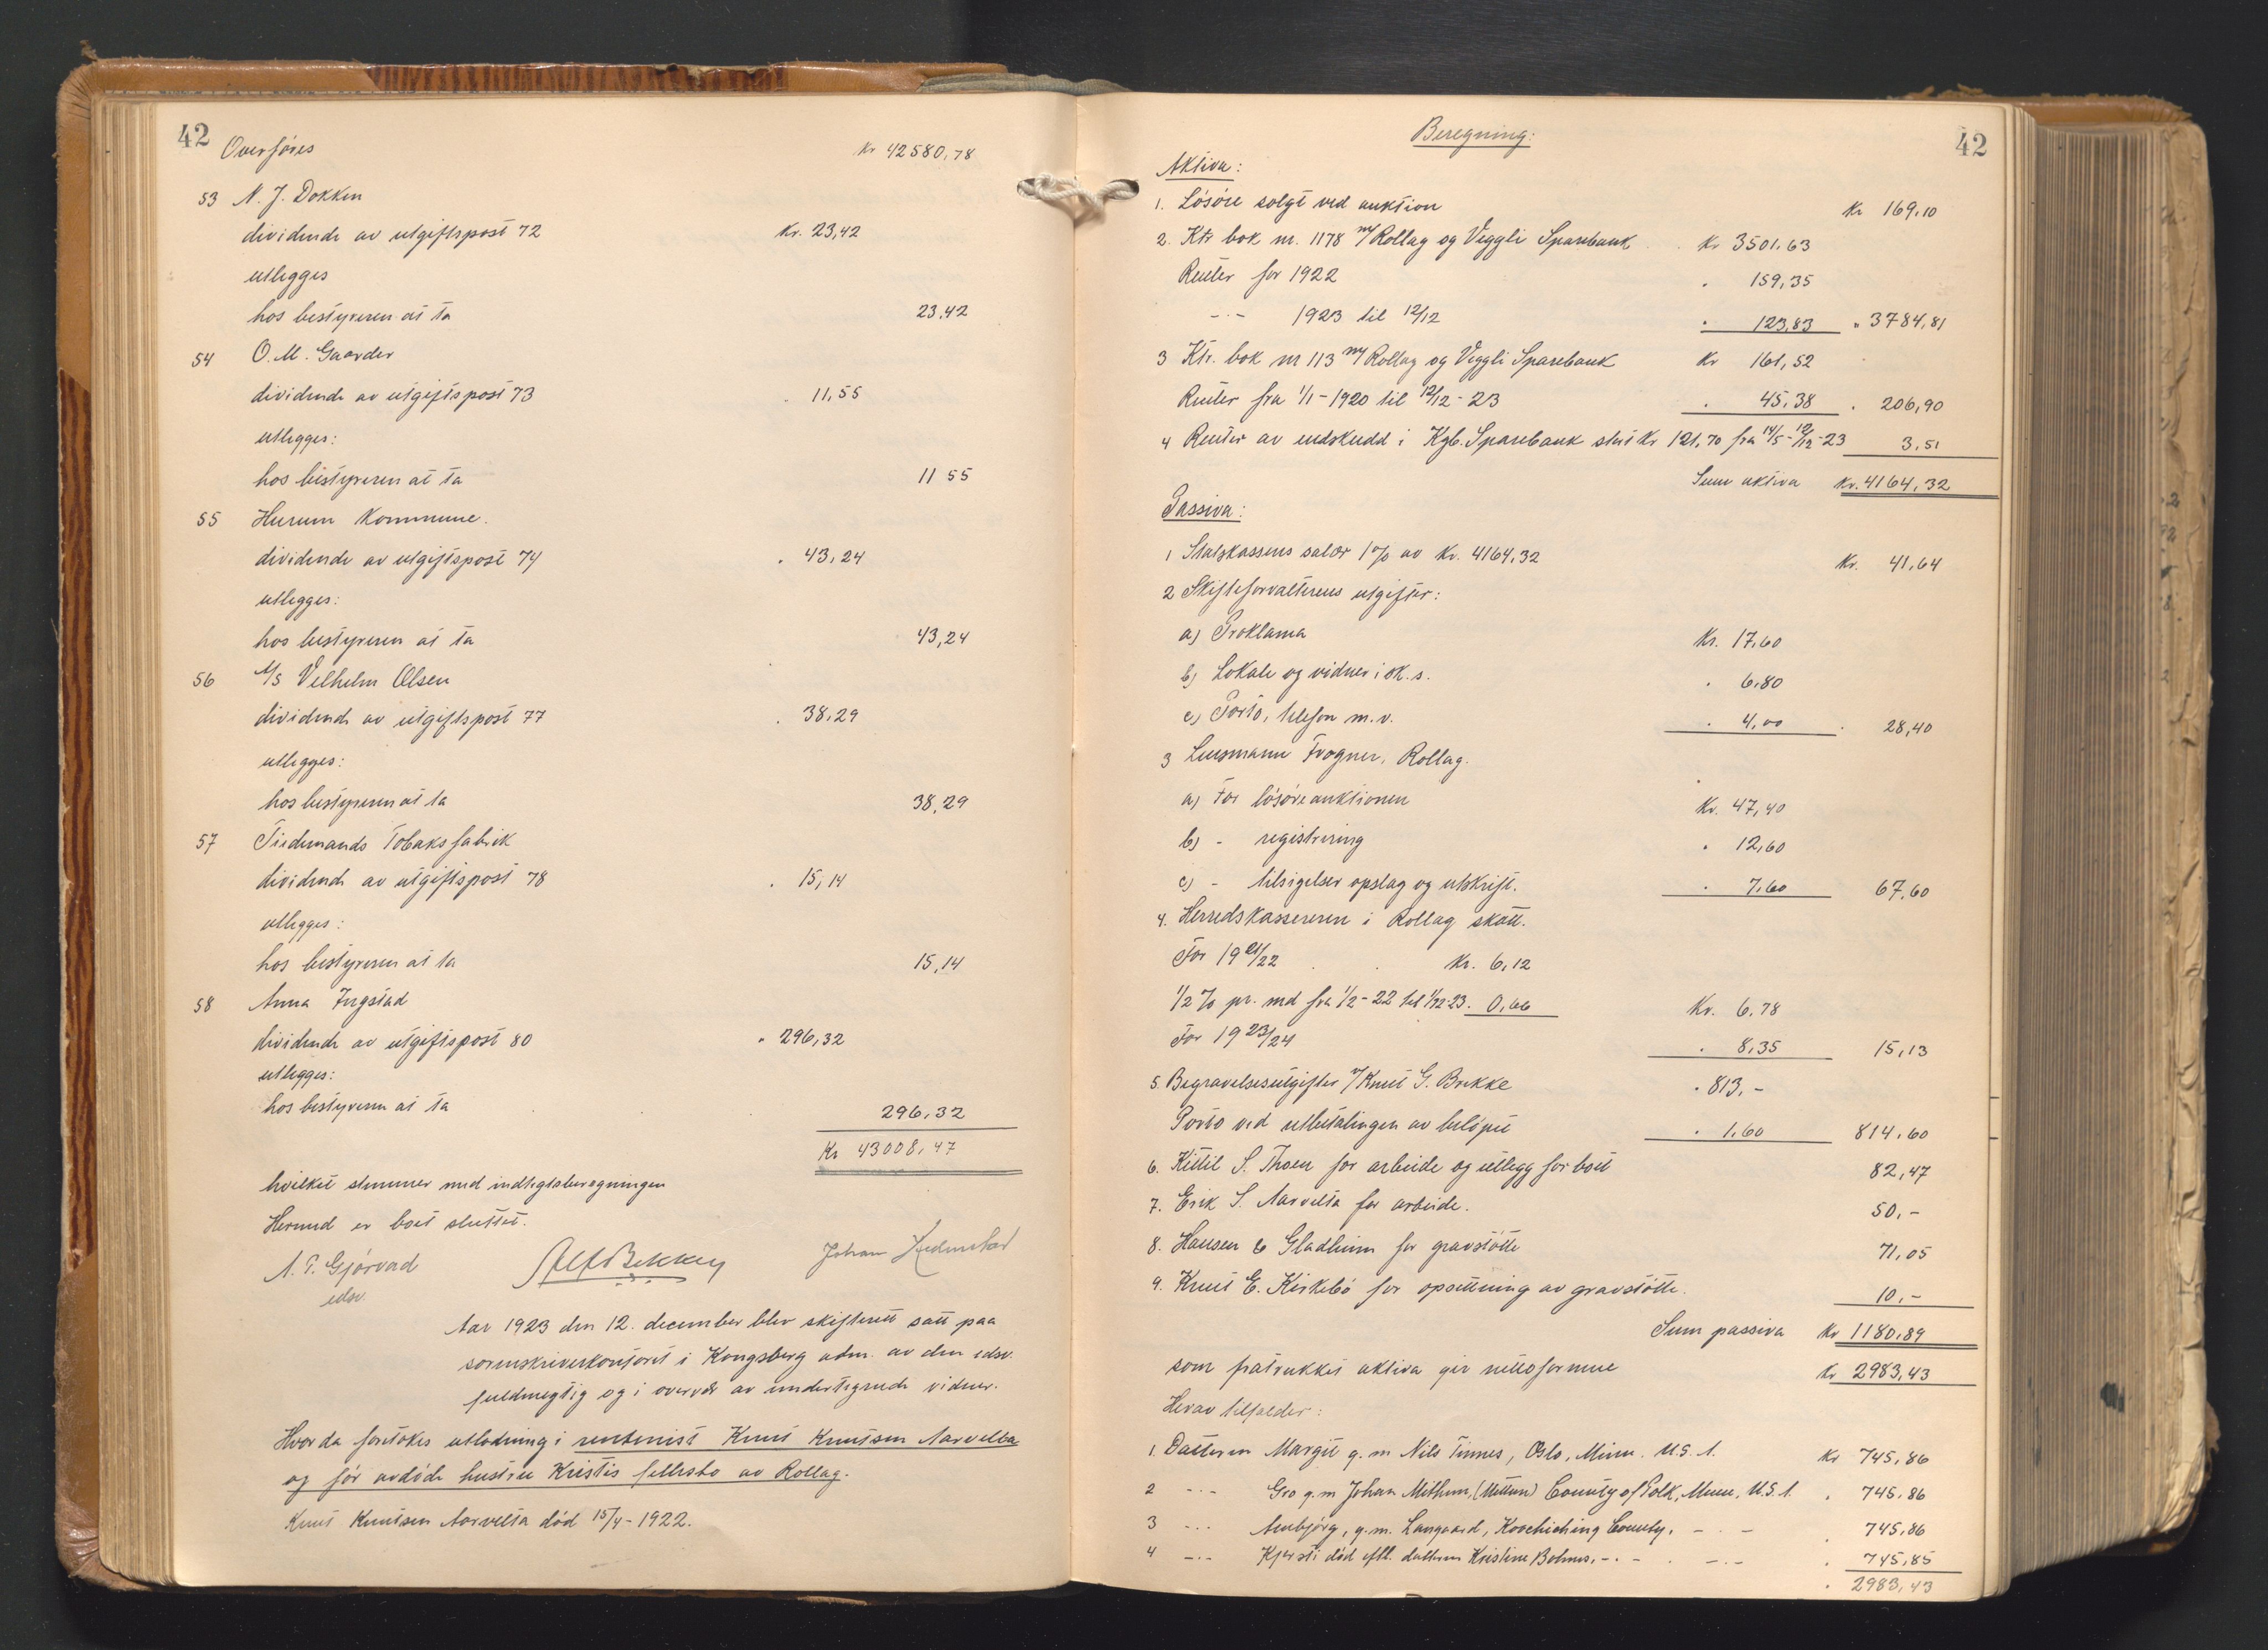 42
Overføres Kr 42580,78
53 N. J. Dokken
dividende av utgiftspost 72 Kr. 23,42
utlegges
hos bestyreren at ta 23,42
54 O. M. Gaarder
dividende av utgiftspost 73 11,55
utlegges:
hos bestyreren at ta 11 55
55 Hurum Kommune.
dividende av utgiftspost 74 . 43,24
utlegges:
hos bestyreren at ta 43,24
56 A/S Vilhelm Olsen
dividende av utgiftspost 77 . 38,29
utlegges:
hos bestyreren at ta 38,29
57 Tiedemands Tobaksfabrik
dividende av utgiftspost 78 . 15,14
utlegges:
hos bestyreren at ta 15,14
58 Anna Ingstad
dividende av utgiftspost 80 . 296,32
utlegges:
hos bestyreren at ta 296,32
Kr 43008,47
hvilket stemmer med indtegtsberegningen
Hermed er boet sluttet.
N. T. Gjørvad Alf Bekken Johan
edsv.
Aar 1923 den 12. december blev skifterett satt paa
sorenskriverkontoret i Kongsberg adm. av den edsv.
fuldmegtig og i overvær av undertegnede vidner.
Hvor da foretokes utlodning i rentenist Knut Knutsen Aarvelta
og før avdøde hustru Kristis fellesbo av Rollag.
Knut Knutsen Aarvelta død 15/4-1922.
42
Beregning:
Aktiva:
1. Løsøre solgt ved auktion Kr 169,10
2. Ktr bok nr. 1178 m/Rollag og Veggli Sparebank Kr 3501,63
Renter for 1922 . 159,35
-.- 1923 til 12/12 . 123,83 . 3784,81
3 Ktr. bok nr 113 m/Rollag og Veggli Sparebank Kr 161,52
Renter fra 1/1-1920 til 12/12-23 . 45,38 . 206,90
4 Renter av indskudd i Kgb. Sparebank stort Kr 121,70 fra 14/5-12/12-23 3,51
Sum aktiva Kr. 4164,32
Passiva:
1 Statskassens salær 1% av Kr. 4164,32 Kr. 41,64
2 Skifteforvalterens utgifter:
a) Proklama Kr. 17,60
b) Lokale og vidner i sk. s. . 6,80
c) Porto, telefon m.v. . 4,00 . 28,40
3 Lensmann Frogner, Rollag.
a) For løsøreauktionen Kr. 47,40
b) - registrering . 12,60
c) - tilsigelser opslag og utskrift. . 7,60 67,60
4. Herredskassereren i Rollag skatt.
For 1921/22 Kr. 6,12
1/2 % pr. md fra 1/2-22 til 1/12-23. 0,66 Kr. 6,78
For 1923/24 . 8,35 15,13
5. Begravelsesutgifter v/Knut G. Brekke . 813,-
Porto ved utbetalingen av beløpet . 1,60 814,60
6. Kittil S. Thoen for arbeide og utlegg for boet 82,47
7. Erik S. Aarvelta for arbeide. 50,-
8. Hansen & Gladheim for gravstøtte 71,05
9. Knut E. Kirkebø for opsettning av gravstøtte. 10,-
Sum passiva Kr 1180,89
som fratrukket aktiva gir nettoformue Kr 2983,43
Herav tilfalder:
1. Datteren Margit g. m Nils Tinnes, Oslo, Minn. U.S.A. Kr 745,86
2 -.- Gro g. m Johan Mithun, (Mittun) County of Polk, Minn, U.S.A. . 745,86
3 -.- Anbjørg, g. m. Langaard, Koochiching County, -.- . 745,86
4 -.- Kjersti død eftl. datteren Kristine Bolmes, -.- -.- . 745,85
. 2983,43